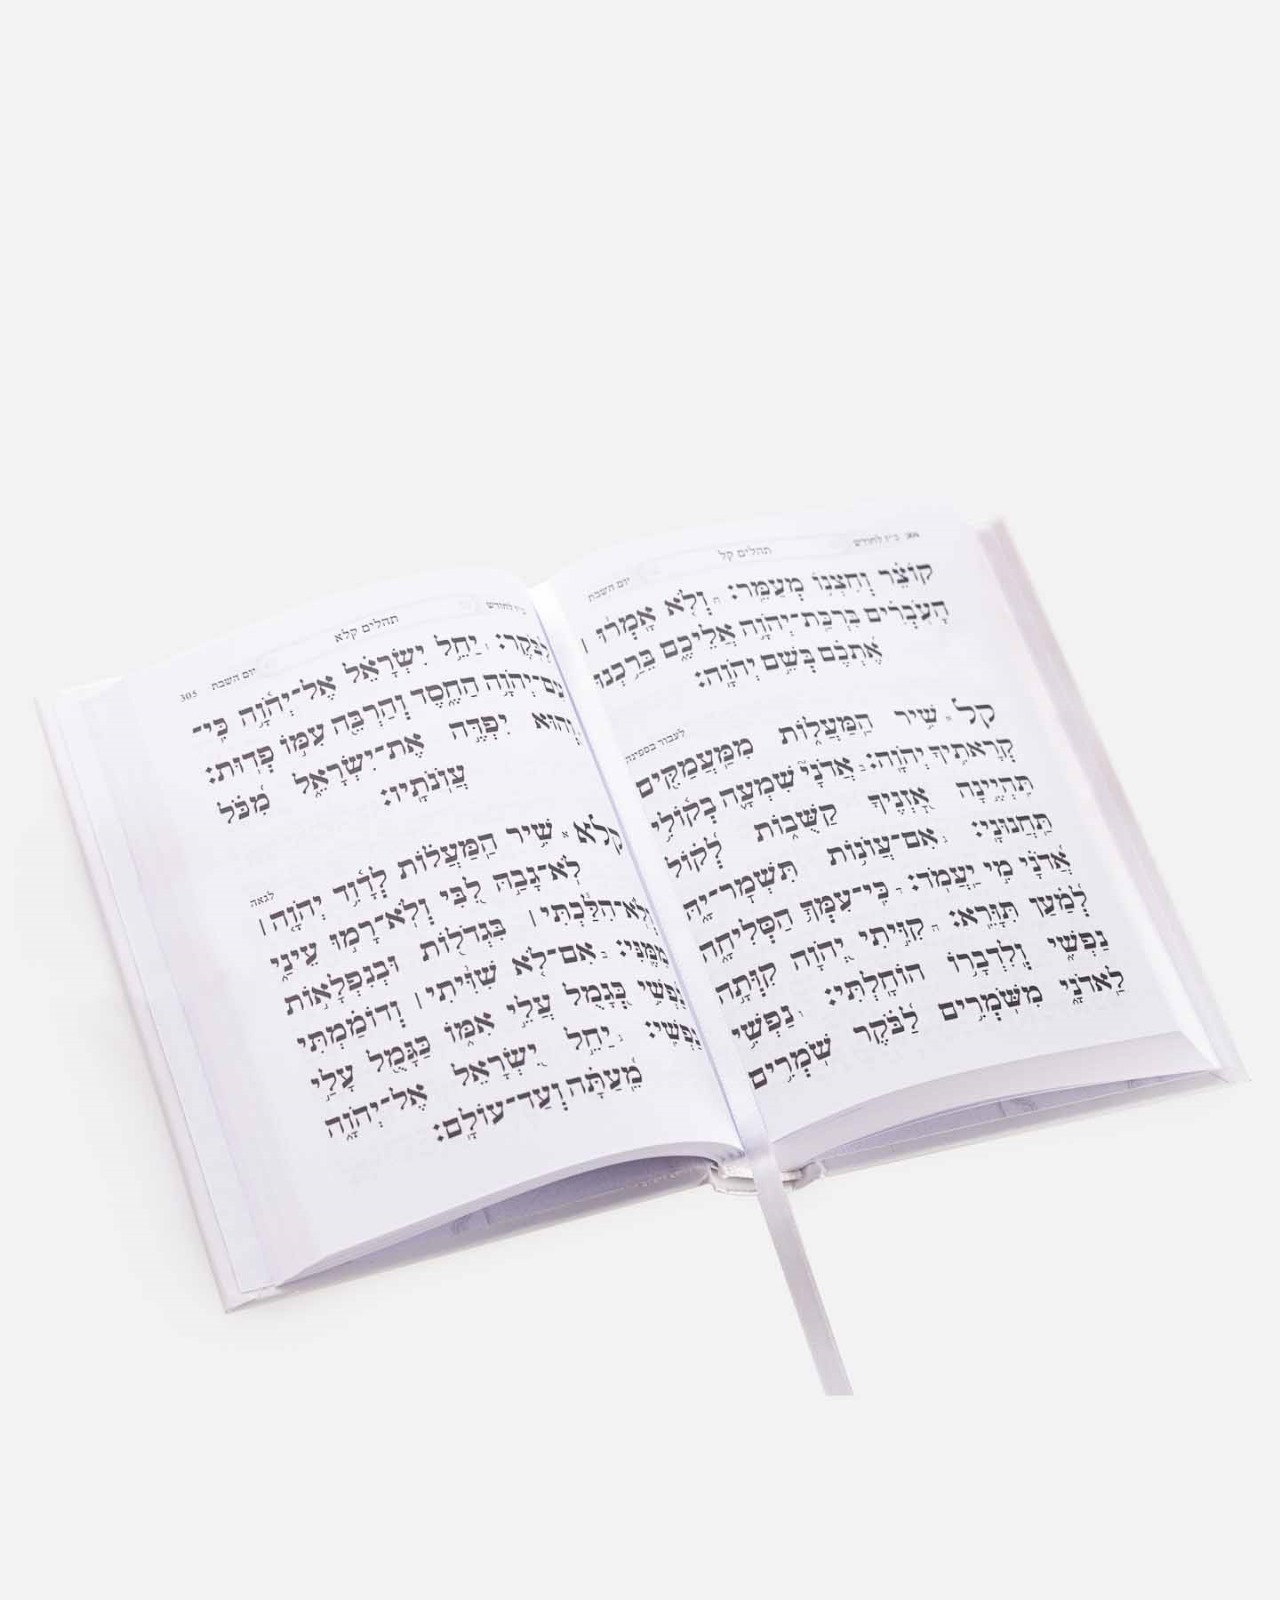 304 כ״ז לחודש תהלים קל יום השבת
קוֹצֵ֗ר וְחִצְנ֥וֹ מְעַמֵּֽר׃ ח וְלֹ֤א אָֽמְר֨וּ ׀
הָעֹבְרִ֗ים בִּרְכַּֽת־יְהוָ֥ה אֲלֵיכֶ֑ם בֵּרַ֥כְנוּ
אֶ֝תְכֶ֗ם בְּשֵׁ֣ם יְהוָֽה׃
לעבור בספינה
קל א שִׁ֥יר הַֽמַּעֲל֑וֹת מִמַּעֲמַקִּ֖ים
קְרָאתִ֣יךָ יְהוָֽה׃ ב אֲדֹנָי֮ שִׁמְעָ֪ה בְק֫וֹלִ֥י
תִּהְיֶ֣ינָה אָ֭זְנֶיךָ קַשֻּׁב֑וֹת לְ֝ק֗וֹל
תַּחֲנוּנָֽי׃ ג אִם־עֲוֺנ֥וֹת תִּשְׁמָר־יָ֑הּ
אֲ֝דֹנָ֗י מִ֣י יַעֲמֹֽד׃ ד כִּֽי־עִמְּךָ֥ הַסְּלִיחָ֑ה
לְ֝מַ֗עַן תִּוָּרֵֽא׃ ה קִוִּ֣יתִי יְ֭הוָה קִוְּתָ֣ה
נַפְשִׁ֑י וְֽלִדְבָר֥וֹ הוֹחָֽלְתִּי׃ ו נַפְשִׁ֥י
לַֽאדֹנָ֑י מִשֹּׁמְרִ֥ים לַ֝בֹּ֗קֶר שֹׁמְרִ֥ים
כ״ז לחודש תהלים קלא יום השבת 305
לַבֹּֽקֶר׃ ז יַחֵ֥ל יִשְׂרָאֵ֗ל אֶל־יְה֫וָ֥ה כִּֽי־
עִם־יְהוָ֥ה הַחֶ֑סֶד וְהַרְבֵּ֖ה עִמּ֣וֹ פְדֽוּת׃
וְ֭הוּא יִפְדֶּ֣ה אֶת־יִשְׂרָאֵ֑ל מִ֝כֹּ֗ל
עֲוֺנֹתָֽיו׃
לגאוה
קלא א שִׁ֥יר הַֽמַּעֲל֗וֹת לְדָ֫וִ֥ד יְהוָ֤ה ׀
לֹא־גָבַ֣הּ לִ֭בִּי וְלֹא־רָמ֣וּ עֵינַ֑י
וְלֹֽא־הִלַּ֓כְתִּי ׀ בִּגְדֹל֖וֹת וּבְנִפְלָא֣וֹת
מִמֶּֽנִּי׃ ב אִם־לֹ֤א שִׁוִּ֨יתִי ׀ וְדוֹמַ֗מְתִּי
נַ֫פְשִׁ֥י כְּ֭גָמֻל עֲלֵ֣י אִמּ֑וֹ כַּגָּמֻ֖ל עָלַ֣י
נַפְשִֽׁי׃ ג יַחֵ֣ל יִ֭שְׂרָאֵל אֶל־יְהוָ֑ה
מֵֽ֝עַתָּ֗ה וְעַד־עוֹלָֽם׃